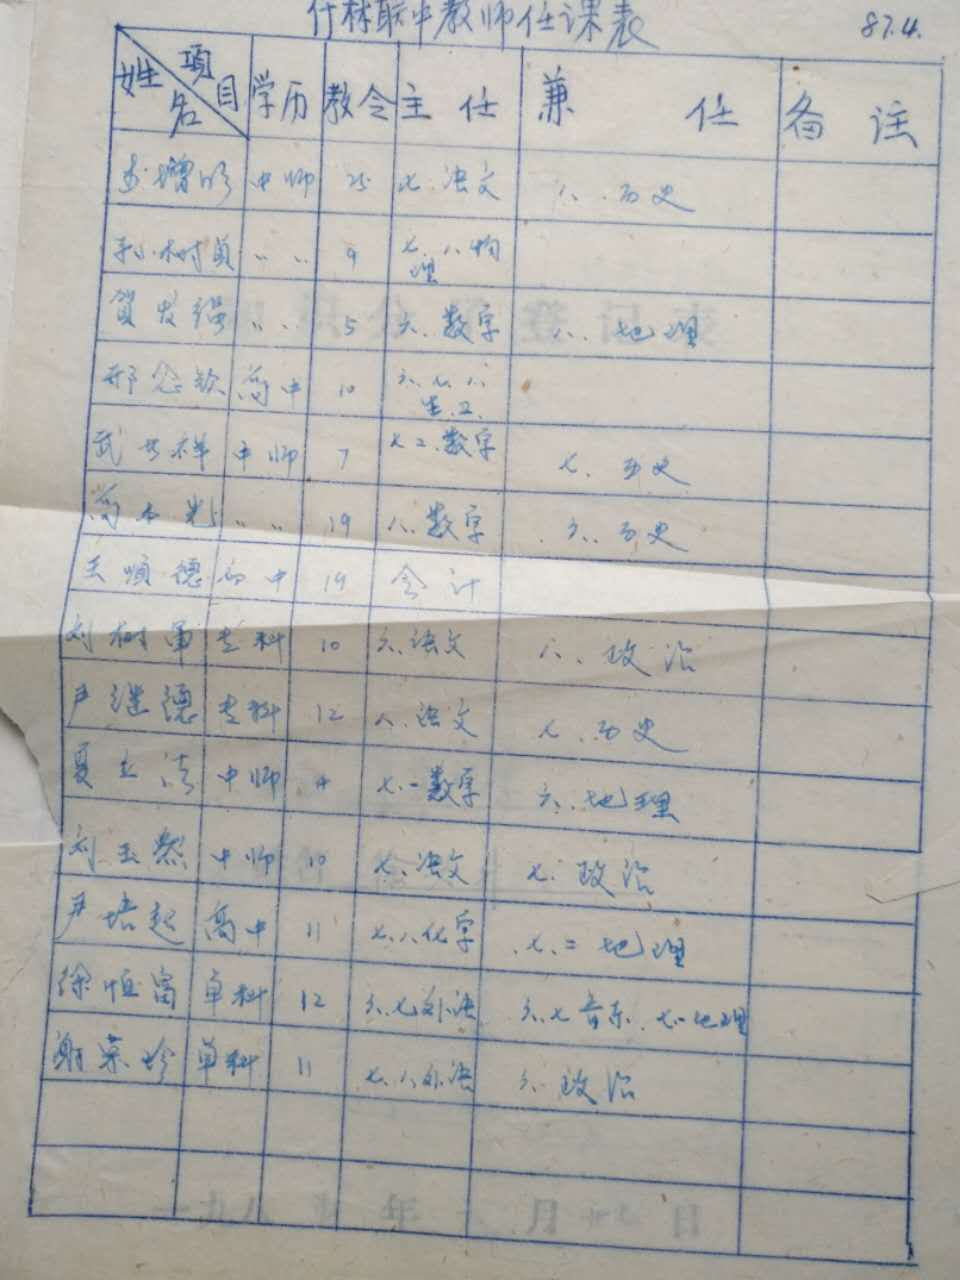 什林联中教师任课表 87.4.
姓名 項目 学历 教令 主任 兼任 备注
李增明 中师 25 七.语文 八.历史
孙树员 〃 〃 9 七.八物理
賀发强 〃 〃 5 六.数字 八.地理
邢忠钦 高中 10 六.七.八生.卫.
武 祥 中师 7 七二.数字 七.历史
尚 光 〃 〃 19 八.数字 六.历史
王順德 初中 19 会计
刘树军 专科 10 六.语文 八.政治
尹继德 专科 12 八.语文 七.历史
夏立法 中师 4 七.一数字 六.地理
刘玉 中师 10 七.语文 七.政治
尹培起 高中 11 七.八化字 七.二地理
徐恒富 单科 12 六.七外语 六.七音乐.七一地理
谢荣珍 单科 11 七.八外语 六.政治